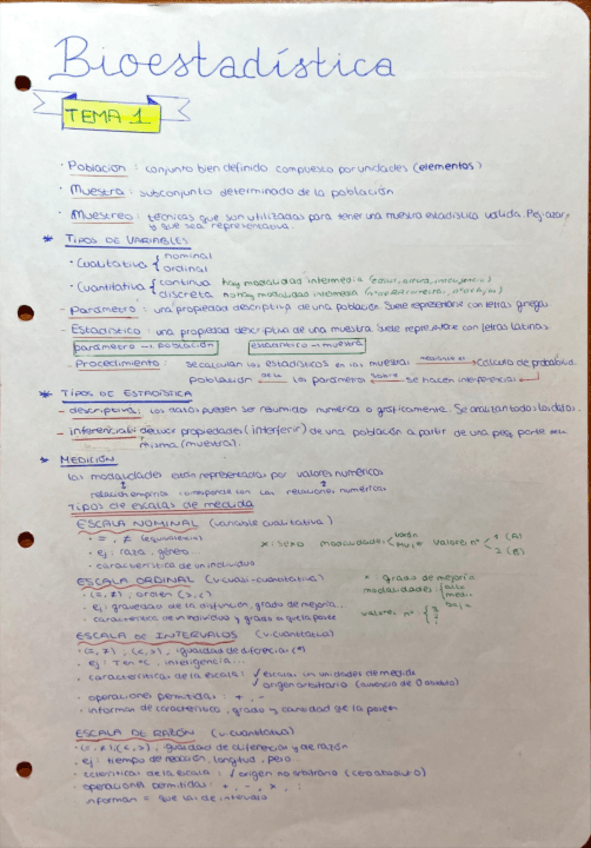 Bioestadística
TEMA 1
· Población : conjunto bien definido compuesto por unidades (elementos)
· Muestra : subconjunto determinado de la población
· Muestreo : técnicas que son utilizadas para tener una muestra estadística valida. Pej: azar,
y que sea representativa.
* TIPOS DE VARIABLES
· Cualitativa { nominal
ordinal
· Cuantitativa { continua hay modalidad intermedia
discreta no hay modalidad intermedia
- Parámetro : una propiedad descriptiva de una población. Suele representarse con letras griegas
- Estadístico : una propiedad descriptiva de una muestra. Suele representarse con letras latinas
parámetro → población estadístico → muestra
- Procedimiento : se calculan los estadísticos en las muestras → Cálculo de probabilid.
población los parámetros sobre se hacen inferencias
* TIPOS DE ESTADÍSTICA
- descriptiva: los datos pueden ser resumido numérica o gráficamente. Se analizan todos los datos.
- inferencial: deducir propiedades (interferir) de una población a partir de una peq. parte de la
misma (muestra).
* MEDICIÓN
Las modalidades están representadas por valores numéricos
relación empírica corresponde con las relaciones numéricas
Tipos de escalas de medida
ESCALA NOMINAL (variable cualitativa)
· = , ≠ (equivalencia)
· ej : raza, género...
· característica de un individuo
x: sexo modalidades valores nº < 1 (A)
2 (B)
ESCALA ORDINAL (v. cuasi-cuantitativa)
· (=, ≠) ; orden (>, <)
· ej : gravedad de la disfunción, grado de mejoría...
· característica de individuo y grado en que la posee
x grado de mejoría
modalidades { alta
media
baja
valores nº { 3
2
ESCALA DE INTERVALOS (v. cuantitativa)
· (=, ≠) , (<, >) , igualdad de diferencias
· ej : Tª en ºC, inteligencia...
· características de la escala : √ escalas en unidades de medida
√ origen arbitrario (ausencia de 0 absoluto)
· operaciones permitidas : + , -
· informan de característica, grado y cantidad que la poseen
ESCALA DE RAZÓN (v. cuantitativa)
· (=, ≠), (<, >) , igualdad de diferencias y de razón
· ej : tiempo de reacción, longitud, peso...
· de la escala : √ origen no arbitrario (cero absoluto 0)
· operaciones permitidas : + , - , × , :
informan = que la de intervalo